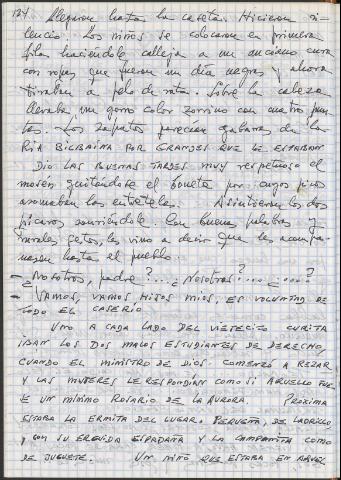 124
Llegaron hasta la caseta. Hicieron si-
lencio. Los niños se colocaron en primera
fila haciéndole calleja a un anciano cura
con ropas que fueron un día negras y ahora
tiraban a pelo de rata. Sobre la cabeza
llevaba un gorro color zorrino con cuatro pun-
tas. Los zapatos parecían gabarras de la
RÍA BILBAINA POR GRANDES QUE LE ESTABAN.
DIO LAS BUENAS TARDES muy respetuoso el
mosén quitándose el bonete por cuyos picos
asomaban las entretelas. Asintieron los dos
pícaros sonriéndole. Con buenas palabras y
gestos, les vino a decir que les acompa-
ñasen hasta el pueblo.
- ¿Nosotros, padre?... ¿Nosotros?... ¿...?
- VAMOS, VAMOS, HIJOS MIOS, ES VOLUNTAD DE
TODO EL CASERIO.
UNO A CADA LADO DEL VIEJECITO CURITA
IBAN LOS DOS MALOS ESTUDIANTES DE DERECHO,
CUANDO EL MINISTRO DE DIOS COMENZÓ A REZAR
Y LAS MUJERES LE RESPONDIAN COMO SI AQUELLO FUE-
SE UN MÍNIMO ROSARIO DE LA AURORA. PRÓXIMA
ESTABA LA ERMITA DEL LUGAR. PEQUEÑA, DE LADRILLO,
Y CON SU ERGUIDA ESPADAÑA Y LA CAMPANITA COMO
DE JUGUETE. UN NIÑO QUE ESTABA EN